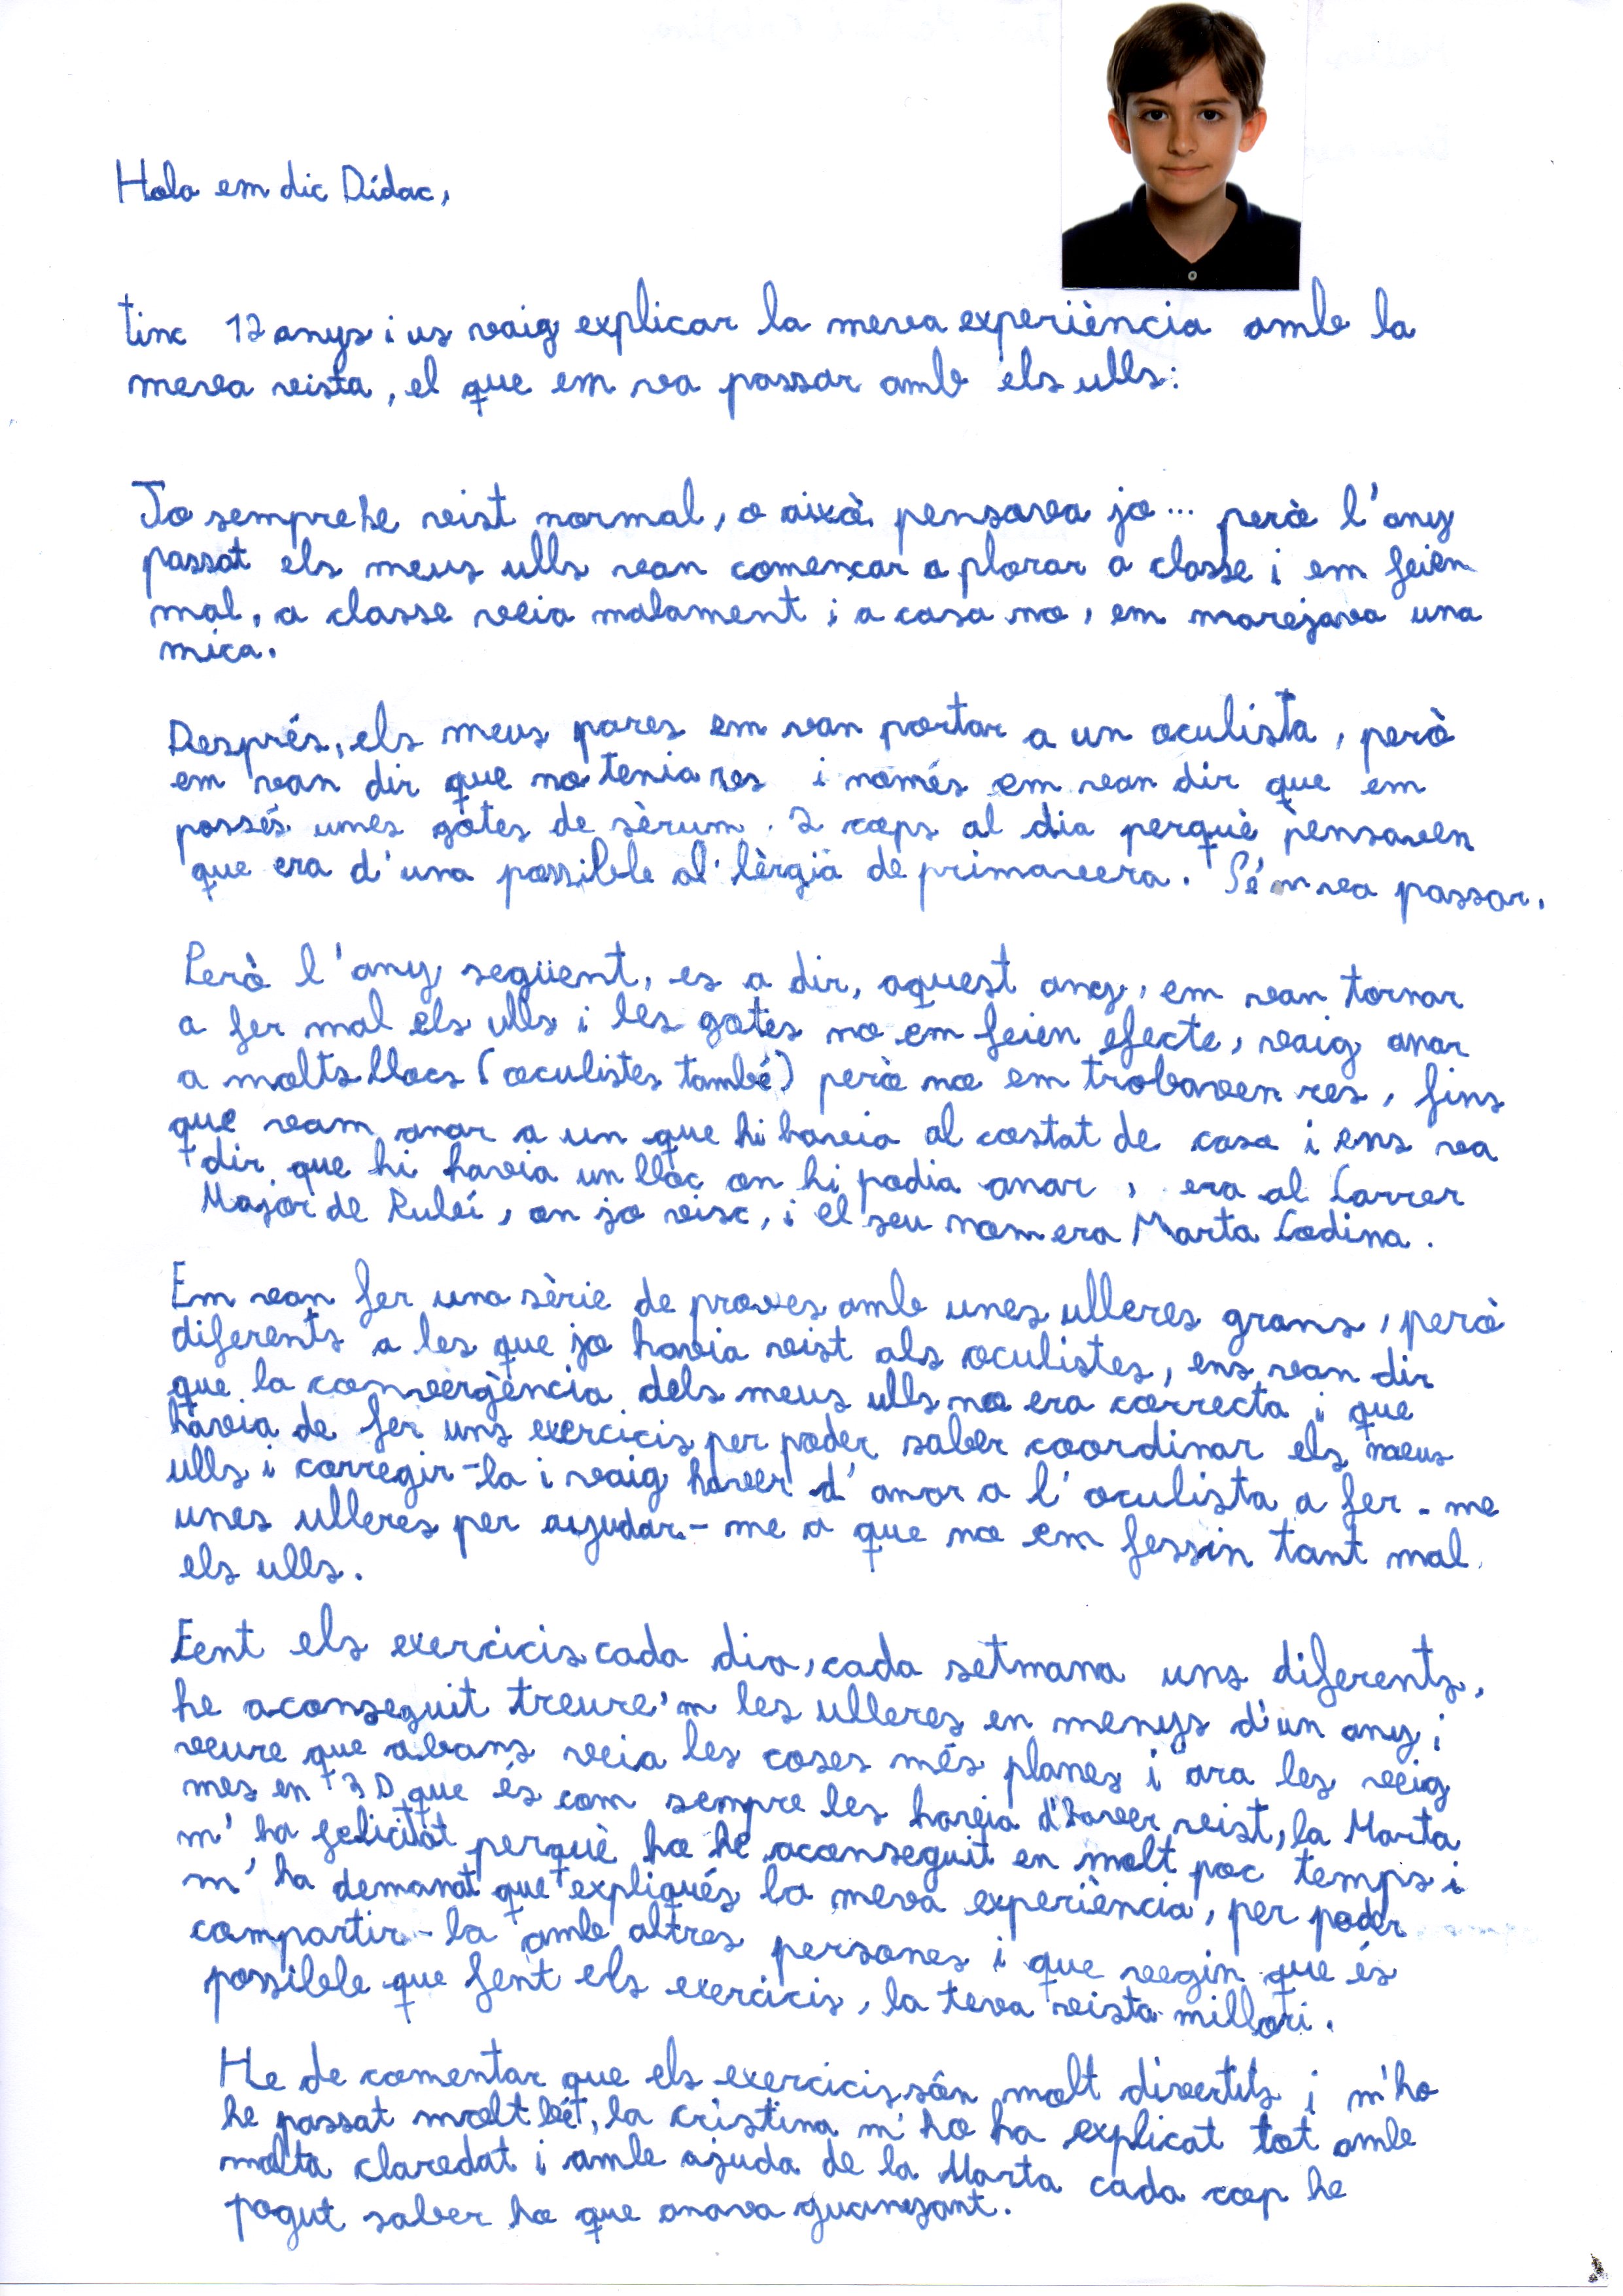 Hola em dic Dídac,
tinc 12 anys i us vaig explicar la meva experiència amb la
meva vista, el que em va passar amb els ulls:
Jo sempre he vist normal, o això pensava jo... però l'any
passat els meus ulls van començar a plorar a classe i em feien
mal, a classe veia malament i a casa no, em marejava una
mica.
Després, els meus pares em van portar a un oculista, però
em van dir que no tenia res i només em van dir que em
possés unes gotes de sèrum 2 cops al dia perquè pensaven
que era d'una possible al·lèrgia de primavera. Sé'm va passar.
Però l'any següent, es a dir, aquest any, em van tornar
a fer mal els ulls i les gotes no em feien efecte, vaig anar
a molts llocs (oculistes també) però no em trobaven res, fins
que vam anar a un que hi havia al costat de casa i ens va
dir que hi havia un lloc on hi podia anar, era al Carrer
Major de Rubí, on jo visc, i el seu nom era Marta Codina.
Em van fer una sèrie de proves amb unes ulleres grans, però
diferents a les que jo havia vist als oculistes, ens van dir
que la convergència dels meus ulls no era correcta i que
havia de fer uns exercicis per poder saber coordinar els meus
ulls i corregir-la i vaig haver d'anar a l'oculista a fer-me
unes ulleres per ajudar-me a que no em fessin tant mal
els ulls.
Fent els exercicis cada dia, cada setmana uns diferents,
he aconseguit treure'm les ulleres en menys d'un any i
veure que abans veia les coses més planes i ara les veig
mes en 3D que és com sempre les havia d'haver vist, la Marta
m'ha felicitat perquè ho he aconseguit en molt poc temps i
m'ha demanat que expliqués la meva experiència, per poder
compartir-la amb altres persones i que vegin que és
possible que fent els exercicis, la teva vista millori.
He de comentar que els exercicis són molt divertits i m'ho
he passat molt bé, la cristina m'ho ha explicat tot amb
molta claredat i amb ajuda de la Marta cada cop he
pogut saber ho que anava guanyant.